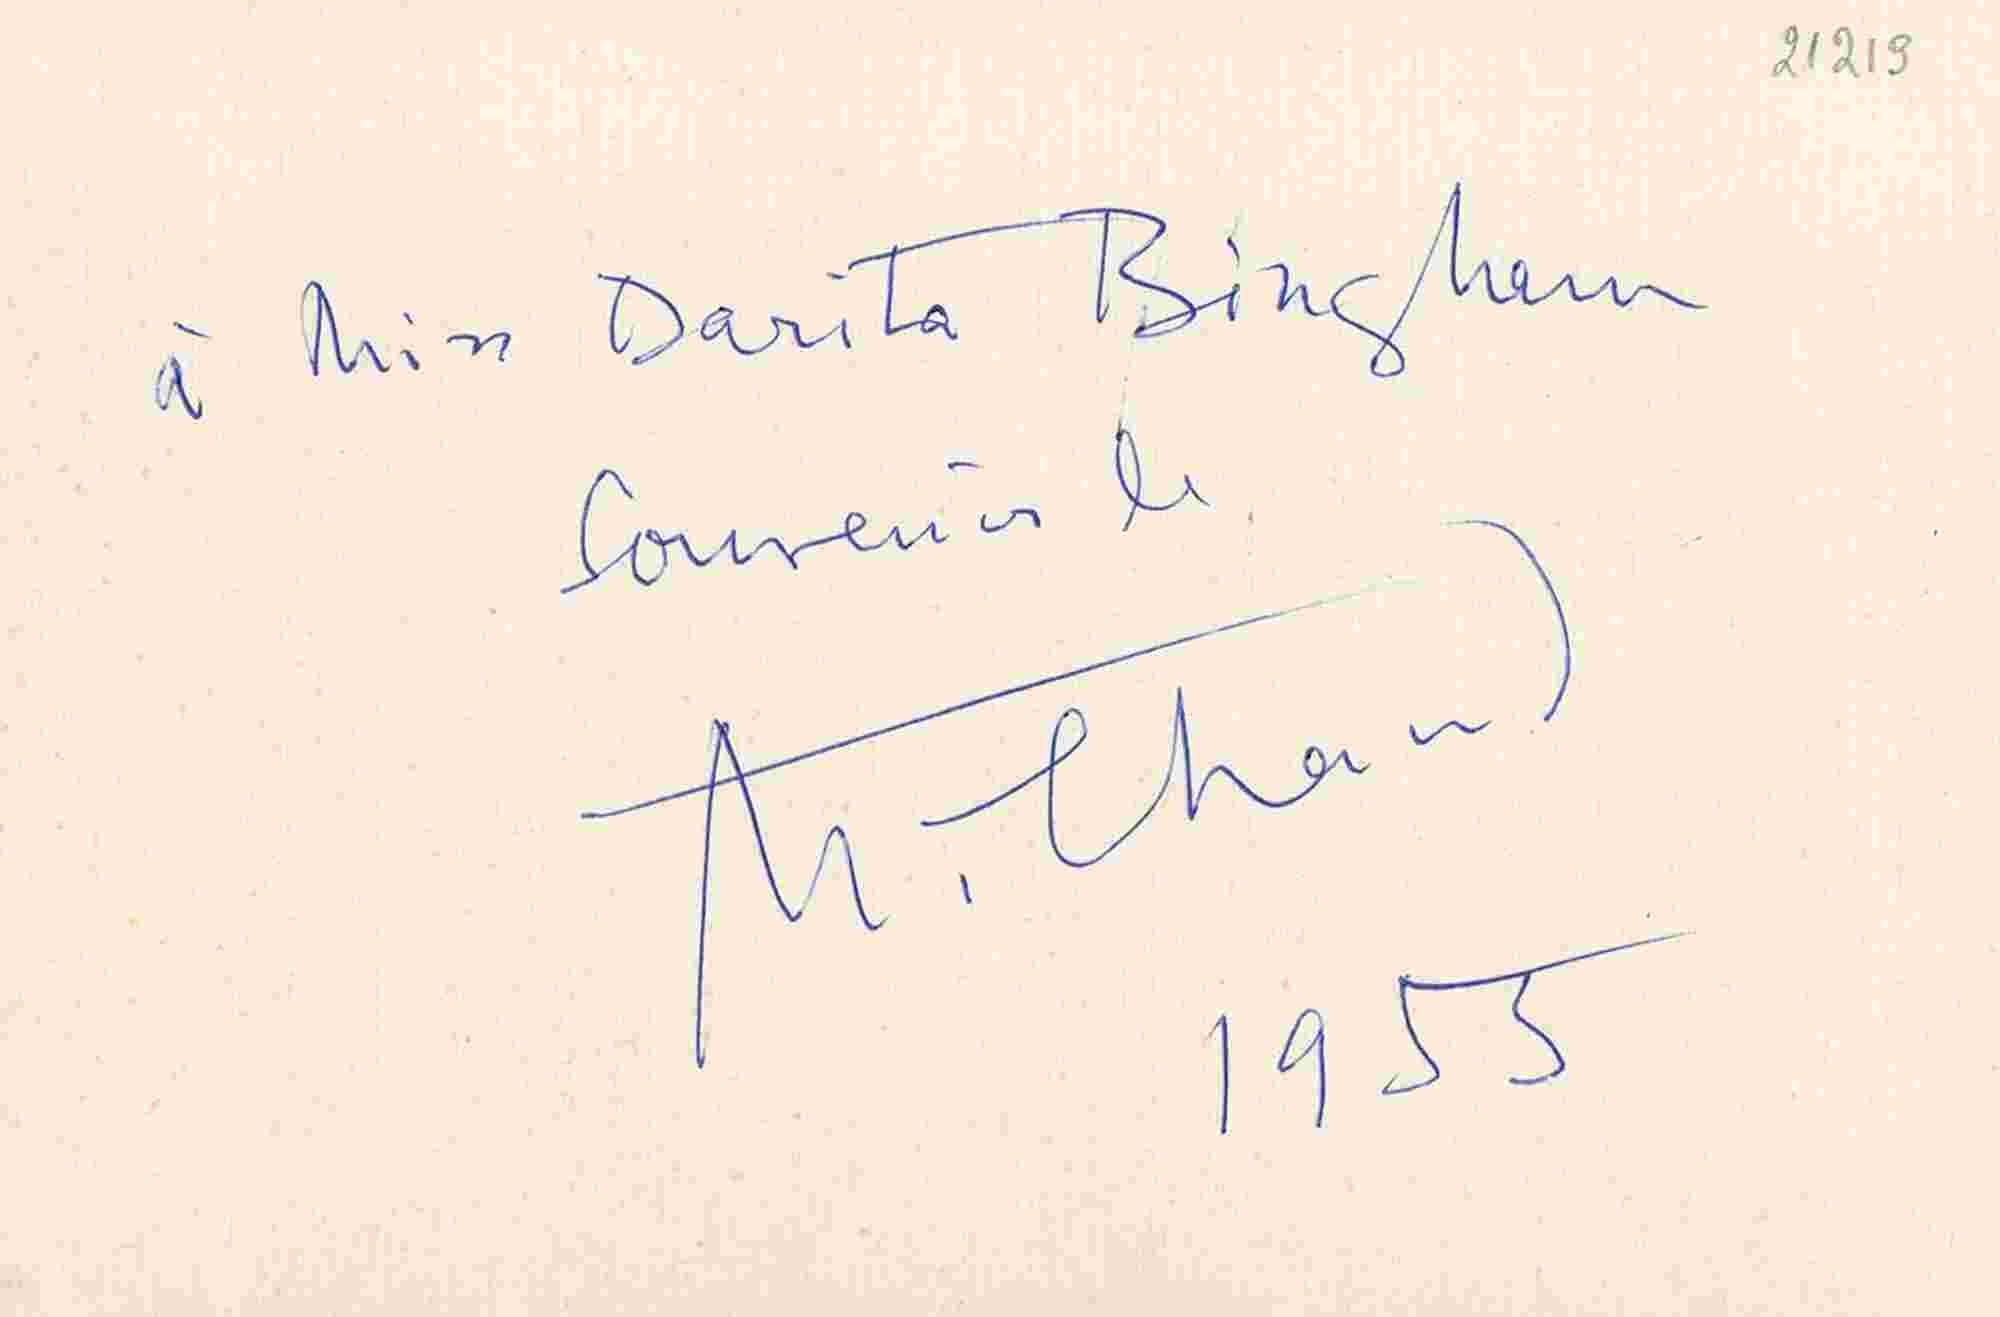 21219
à Miss Darita Bingham
Souvenir de
1955